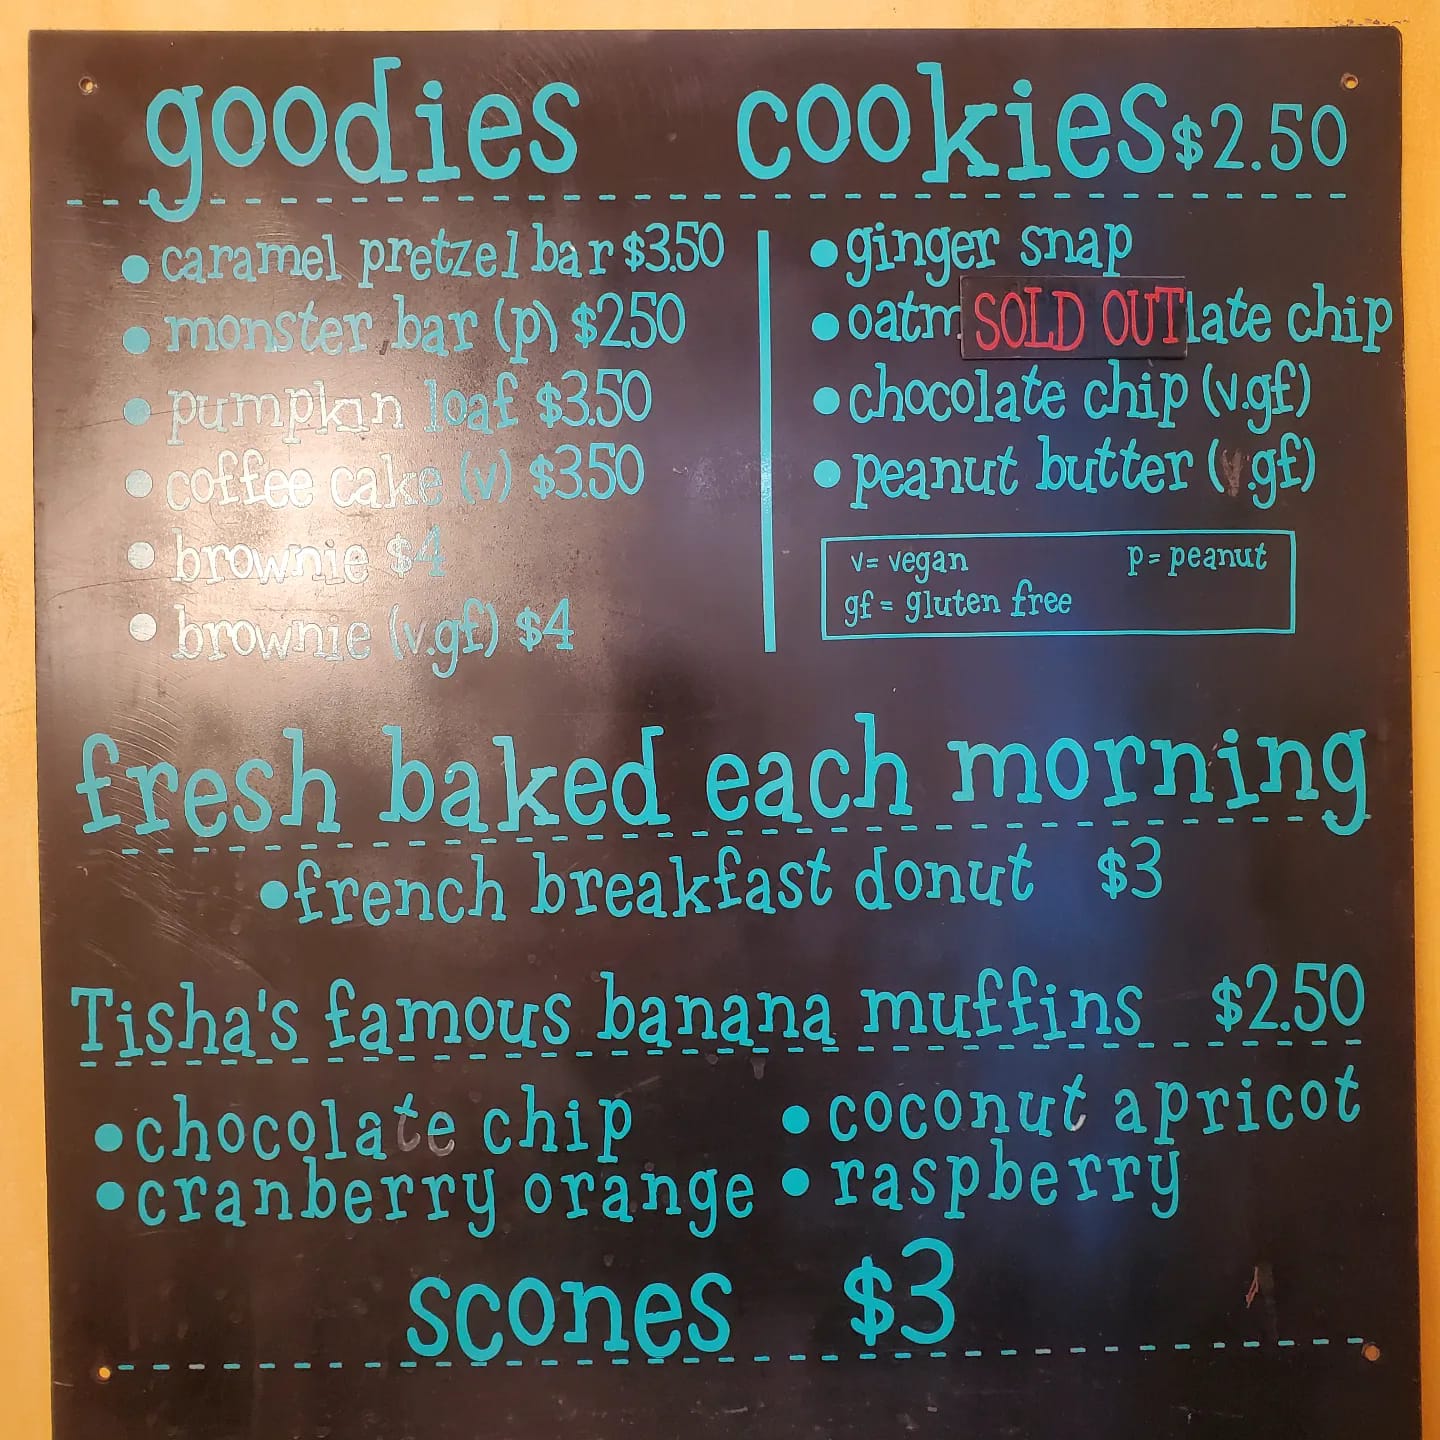 goodies
caramel pretzel bar $3.50
monster bar (p) $2.50
pumpkin loaf $3.50
coffee cake (v) $3.50
brownie $4
brownie (v.gf) $4
cookies $2.50
ginger snap
oatm SOLD OUT late chip
chocolate chip (v.gf)
peanut butter ( .gf)
v= vegan p= peanut
gf = gluten free
fresh baked each morning
french breakfast donut $3
Tisha's famous banana muffins $2.50
chocolate chip
cranberry orange
coconut apricot
raspberry
scones $3